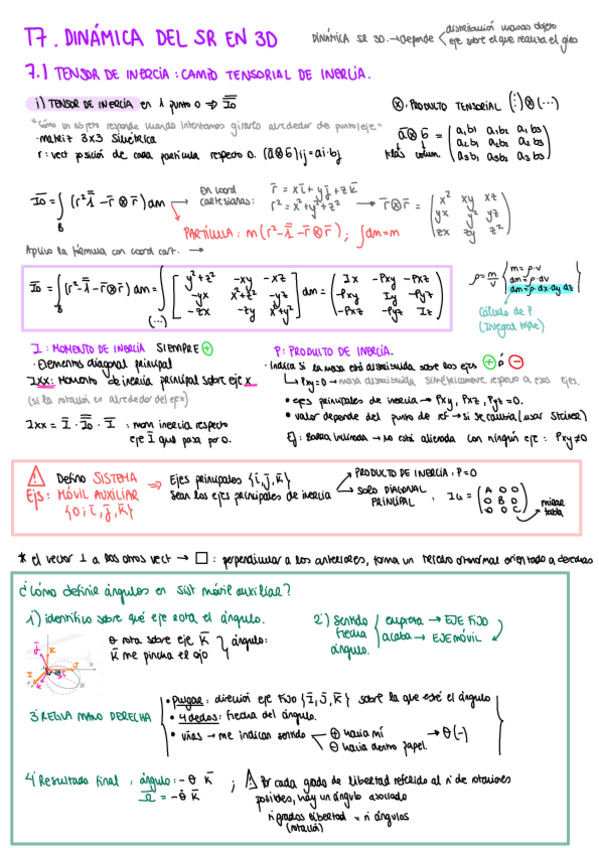 T7. DINÁMICA DEL SR EN 3D
DINÁMICA SR 3D. → depende < distribución masas objeto
eje sobre el que realiza el giro
7.1 TENSOR DE INERCIA: CAMPO TENSORIAL DE INERCIA.
i) TENSOR DE INERCIA en 1 punto O ⇒ I̿o
⊗. PRODUCTO TENSORIAL (⋮)⊗(...)
"Cómo un objeto responde cuando intentamos girarlo alrededor de punto/eje"
· matriz 3x3 simétrica
r: vect posición de cada partícula respecto O. (a̅⊗b̅)ij = ai·bj
a̅⊗b̅ = (a1b1 a1b2 a1b3
a2b1 a2b2 a2b3
a3b1 a3b2 a3b3)
filas colum.
I̿o = ∫B (r² 1̿ - r̅⊗r̅) dm → En coord cartesianas:
r̅ = xi̅ + yj̅ + zk̅
r² = x²+y²+z²
→ r̅⊗r̅ = (x² xy xz
yx y² yz
zx zy z²)
PARTÍCULA: m(r²·1̿ - r̅⊗r̅); ∫dm = m
Aplico la fórmula con coord cart. →
I̿o = ∫B (r²·1̿ - r̅⊗r̅) dm = ∫(...) [y²+z² -xy -xz
-yx x²+z² -yz
-zx -zy x²+y²] dm = (Ix -Pxy -Pxz
-Pxy Iy -Pyz
-Pxz -Pyz Iz)
ρ = m/v
m = ρ·v
dm = ρ·dv
dm = ρ·dx·dy dz
Cálculo de P
(Integral triple)
I: MOMENTO DE INERCIA SIEMPRE ⊕
P: PRODUCTO DE INERCIA.
· Elementos diagonal principal
· Indica si la masa está distribuida sobre los ejes ⊕ ó ⊖
Ixx: Momento de inercia principal sobre eje x
↳ Pxy = 0 → masa distribuida simétricamente respecto a esos ejes.
(si la rotación es alrededor del eje x)
• ejes principales de inercia → Pxy, Pxz, Pyz = 0.
Ixx = i̅ · I̿o · i̅ : mom inercia respecto
eje i̅ que pasa por O.
• valor depende del punto de ref → si se cambia (usar Steiner)
Ej: Barra inclinada → no está alineada con ningún eje: Pxy ≠ 0
⚠ Defino SISTEMA
Ejs: MÓVIL AUXILIAR
{O; i̅, j̅, k̅}
⇒ Ejes principales {i̅, j̅, k̅}
sean los ejes principales de inercia
→ PRODUCTO DE INERCIA: P=0
→ SOLO DIAGONAL
PRINCIPAL
, IG = (A 0 0
0 B 0
0 0 C)
mirar
tabla
* el vector ⊥ a los otros vect → □ : perpendicular a los anteriores, forma un triedro ortonormal orientado a derechas
¿Cómo definir ángulos en sist móvil auxiliar?
1) identifico sobre qué eje rota el ángulo.
θ rota sobre eje K̅
K̅ me pincha el ojo
} ángulo:
2) sentido
flecha
ángulo.
empieza → EJE FIJO
acaba → EJE MÓVIL
3. REGLA MANO DERECHA
• Pulgar: dirección eje FIJO {I̅, J̅, K̅} sobre la que esté el ángulo
• 4 dedos: flecha del ángulo.
• uñas → me indican sentido < ⊕ hacia mí
⊖ hacia dentro papel.
→ θ(-)
4. Resultado final, ángulo: -θ K̅
Ω̅ = -θ̇ K̅
; ⚠ Por cada grado de libertad referido al nº de rotaciones
posibles, hay un ángulo asociado
nº grados libertad = nº ángulos
(rotación)